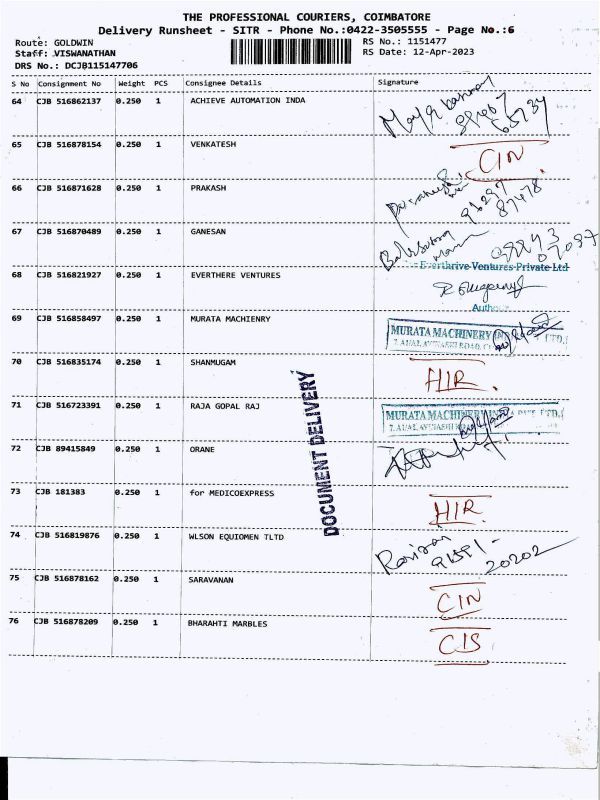 THE PROFESSIONAL COURIERS, COIMBATORE
Delivery Runsheet - SITR - Phone No.:0422-3505555 - Page No.:6
Route: GOLDWIN
RS No.: 1151477
Staff: VISWANATHAN
RS Date: 12-Apr-2023
DRS No.: DCJB115147706
S No Consignment No Weight PCS Consignee Details Signature
64 CJB 516862137 0.250 1 ACHIEVE AUTOMATION INDA
65 CJB 516878154 0.250 1 VENKATESH CIN
66 CJB 516871628 0.250 1 PRAKASH 87478
67 CJB 516870489 0.250 1 GANESAN
Everthrive Ventures Private Ltd
68 CJB 516821927 0.250 1 EVERTHERE VENTURES
69 CJB 516858497 0.250 1 MURATA MACHIENRY MURATA MACHINERY
70 CJB 516835174 0.250 1 SHANMUGAM HIR.
71 CJB 516723391 0.250 1 RAJA GOPAL RAJ MURATA MACHINERY
72 CJB 89415849 0.250 1 ORANE
73 CJB 181383 0.250 1 for MEDICOEXPRESS HIR.
74 CJB 516819876 0.250 1 WLSON EQUIOMEN TLTD 20202
75 CJB 516878162 0.250 1 SARAVANAN CIN
76 CJB 516878209 0.250 1 BHARAHTI MARBLES CIS
DOCUMENT DELIVERY